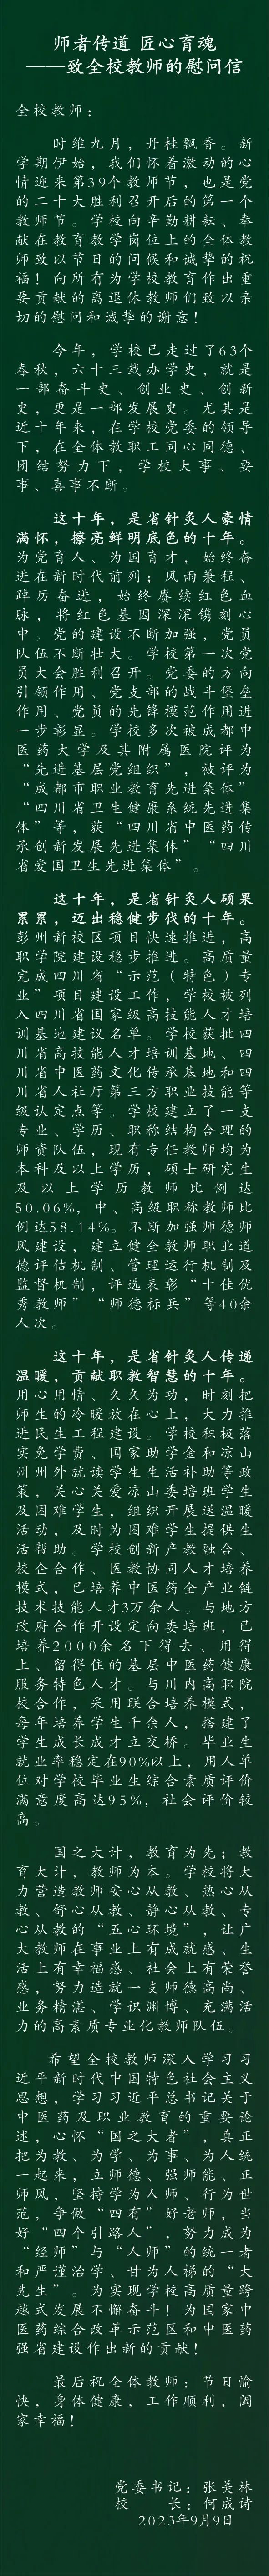 师者传道 匠心育魂
——致全校教师的慰问信
全校教师：
时维九月，丹桂飘香。新
学期伊始，我们怀着激动的心
情迎来第39个教师节，也是党
的二十大胜利召开后的第一个
教师节。学校向辛勤耕耘、奉
献在教育教学岗位上的全体教
师致以节日的问候和诚挚的祝
福！向所有为学校教育作出重
要贡献的离退休教师们致以亲
切的慰问和诚挚的谢意！
今年，学校已走过了63个
春秋，六十三载办学史，就是
一部奋斗史、创业史、创新
史，更是一部发展史。尤其是
近十年来，在学校党委的领导
下，在全体教职工同心同德、
团结努力下，学校大事、要
事、喜事不断。
这十年，是省针灸人豪情
满怀，擦亮鲜明底色的十年。
为党育人、为国育才，始终奋
进在新时代前列；风雨兼程、
踔厉奋进，始终赓续红色血
脉，将红色基因深深镌刻心
中。党的建设不断加强，党员
队伍不断壮大。学校第一次党
员大会胜利召开。党委的方向
引领作用、党支部的战斗堡垒
作用、党员的先锋模范作用进
一步彰显。学校多次被成都中
医药大学及其附属医院评为
“先进基层党组织”，被评为
“成都市职业教育先进集体”
“四川省卫生健康系统先进集
体”等，获“四川省中医药传
承创新发展先进集体”“四川
省爱国卫生先进集体”。
这十年，是省针灸人硕果
累累，迈出稳健步伐的十年。
彭州新校区项目快速推进，高
职学院建设稳步推进。高质量
完成四川省“示范（特色）专
业”项目建设工作，学校被列
入四川省国家级高技能人才培
训基地建议名单。学校获批四
川省高技能人才培训基地、四
川省中医药文化传承基地和四
川省人社厅第三方职业技能等
级认定点等。学校建立了一支
专业、学历、职称结构合理的
师资队伍，现有专任教师均为
本科及以上学历，硕士研究生
及以上学历教师比例达
50.06%，中、高级职称教师比
例达58.14%。不断加强师德师
风建设，建立健全教师职业道
德评估机制、管理运行机制及
监督机制，评选表彰“十佳优
秀教师”“师德标兵”等40余
人次。
这十年，是省针灸人传递
温暖，贡献职教智慧的十年。
用心用情、久久为功，时刻把
师生的冷暖放在心上，大力推
进民生工程建设。学校积极落
实免学费、国家助学金和凉山
州州外就读学生生活补助等政
策，关心关爱凉山委培班学生
及困难学生，组织开展送温暖
活动，及时为困难学生提供生
活帮助。学校创新产教融合、
校企合作、医教协同人才培养
模式，已培养中医药全产业链
技术技能人才3万余人。与地方
政府合作开设定向委培班，已
培养2000余名下得去、用得
上、留得住的基层中医药健康
服务特色人才。与川内高职院
校合作，采用联合培养模式，
每年培养学生千余人，搭建了
学生成长成才立交桥。毕业生
就业率稳定在90%以上，用人单
位对学校毕业生综合素质评价
满意度高达95%，社会评价较
高。
国之大计，教育为先；教
育大计，教师为本。学校将大
力营造教师安心从教、热心从
教、舒心从教、静心从教、专
心从教的“五心环境”，让广
大教师在事业上有成就感、生
活上有幸福感、社会上有荣誉
感，努力造就一支师德高尚、
业务精湛、学识渊博、充满活
力的高素质专业化教师队伍。
希望全校教师深入学习习
近平新时代中国特色社会主义
思想，学习习近平总书记关于
中医药及职业教育的重要论
述，心怀“国之大者”，真正
把为教、为学、为事、为人统
一起来，立师德、强师能、正
师风，坚持学为人师、行为世
范，争做“四有”好老师，当
好“四个引路人”，努力成为
“经师”与“人师”的统一者
和严谨治学、甘为人梯的“大
先生”。为实现学校高质量跨
越式发展不懈奋斗！为国家中
医药综合改革示范区和中医药
强省建设作出新的贡献！
最后祝全体教师：节日愉
快，身体健康，工作顺利，阖
家幸福！
党委书记：张美林
校 长：何成诗
2023年9月9日